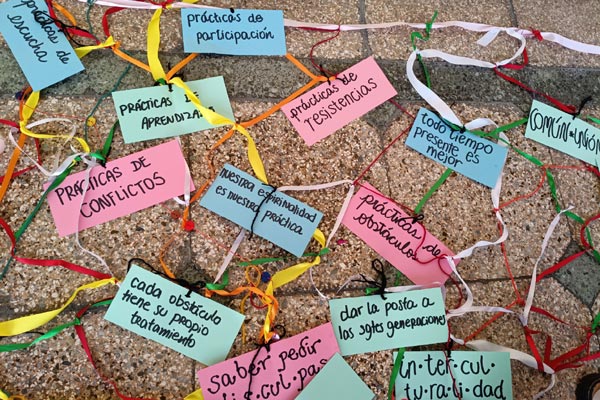 prácticas
de
escucha
prácticas de
participación
PRÁCTICAS DE
APRENDIZAJE
prácticas de
resistencias
todo tiempo
presente es
mejor
COMÚN*UNIÓN
PRÁCTICAS DE
CONFLICTOS
NUESTRA ESPIRALIDAD
es NUESTRA PRÁCTICA
prácticas de
obstáculos
cada obstáculo
tiene su propio
tratamiento
dar la posta a
las sgtes generaciones
saber pedir
dis·cul·pas
in·ter·cul·
tu·ra·li·dad